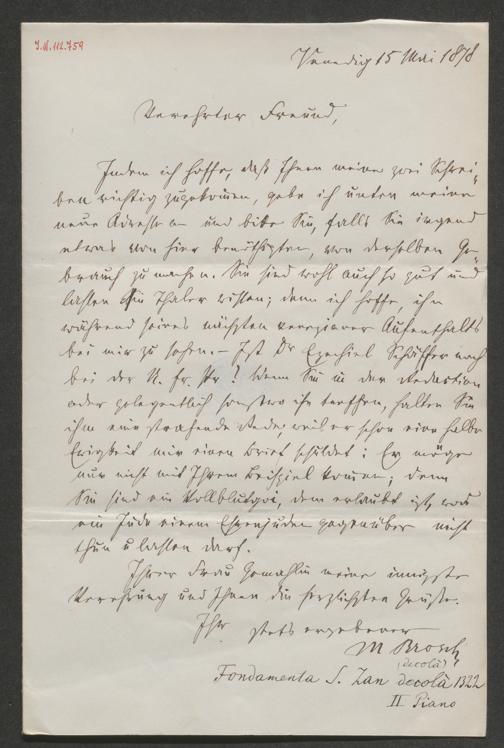 I.N. 112.759
Venedig 15 Mai 1878
Verehrter Freund,
Indem ich hoffe, daß Ihnen meine zwei Schrei-
ben richtig zugekommen, gebe ich unten meine
neue Adresse an und bitte Sie, falls Sie irgend
etwas von hier benöthigten, von derselben Ge-
brauch zu machen. Sie sind wohl auch so gut und
lassen sie Thaler wissen; denn ich hoffe, ihn
während seines nächsten venezianer Aufenthalts
bei mir zu sehen. – Ist Dr Ezechiel Schäffer noch
bei der N. fr. Pr.? Wenn Sie in der Redaction
oder gelegentlich sonstwo ihn treffen, halten Sie
ihm eine strafende Rede, weil er schon eine halbe
Ewigkeit mir einen Brief schuldet: Er möge
nur nicht mit Ihrem Beispiel kommen; denn
Sie sind ein Vollblutgoi, dem erlaubt ist, was
ein Jude einem Exjuden gegenüber nicht
thun u lassen darf.
Ihrer Frau Gemahlin meine innigste
Verehrung und Ihnen die herzlichsten Grüße.
Ihr stets ergebener
M Brosch
(decolà)
Fondamenta S. Zan decolà 1322
II Piano